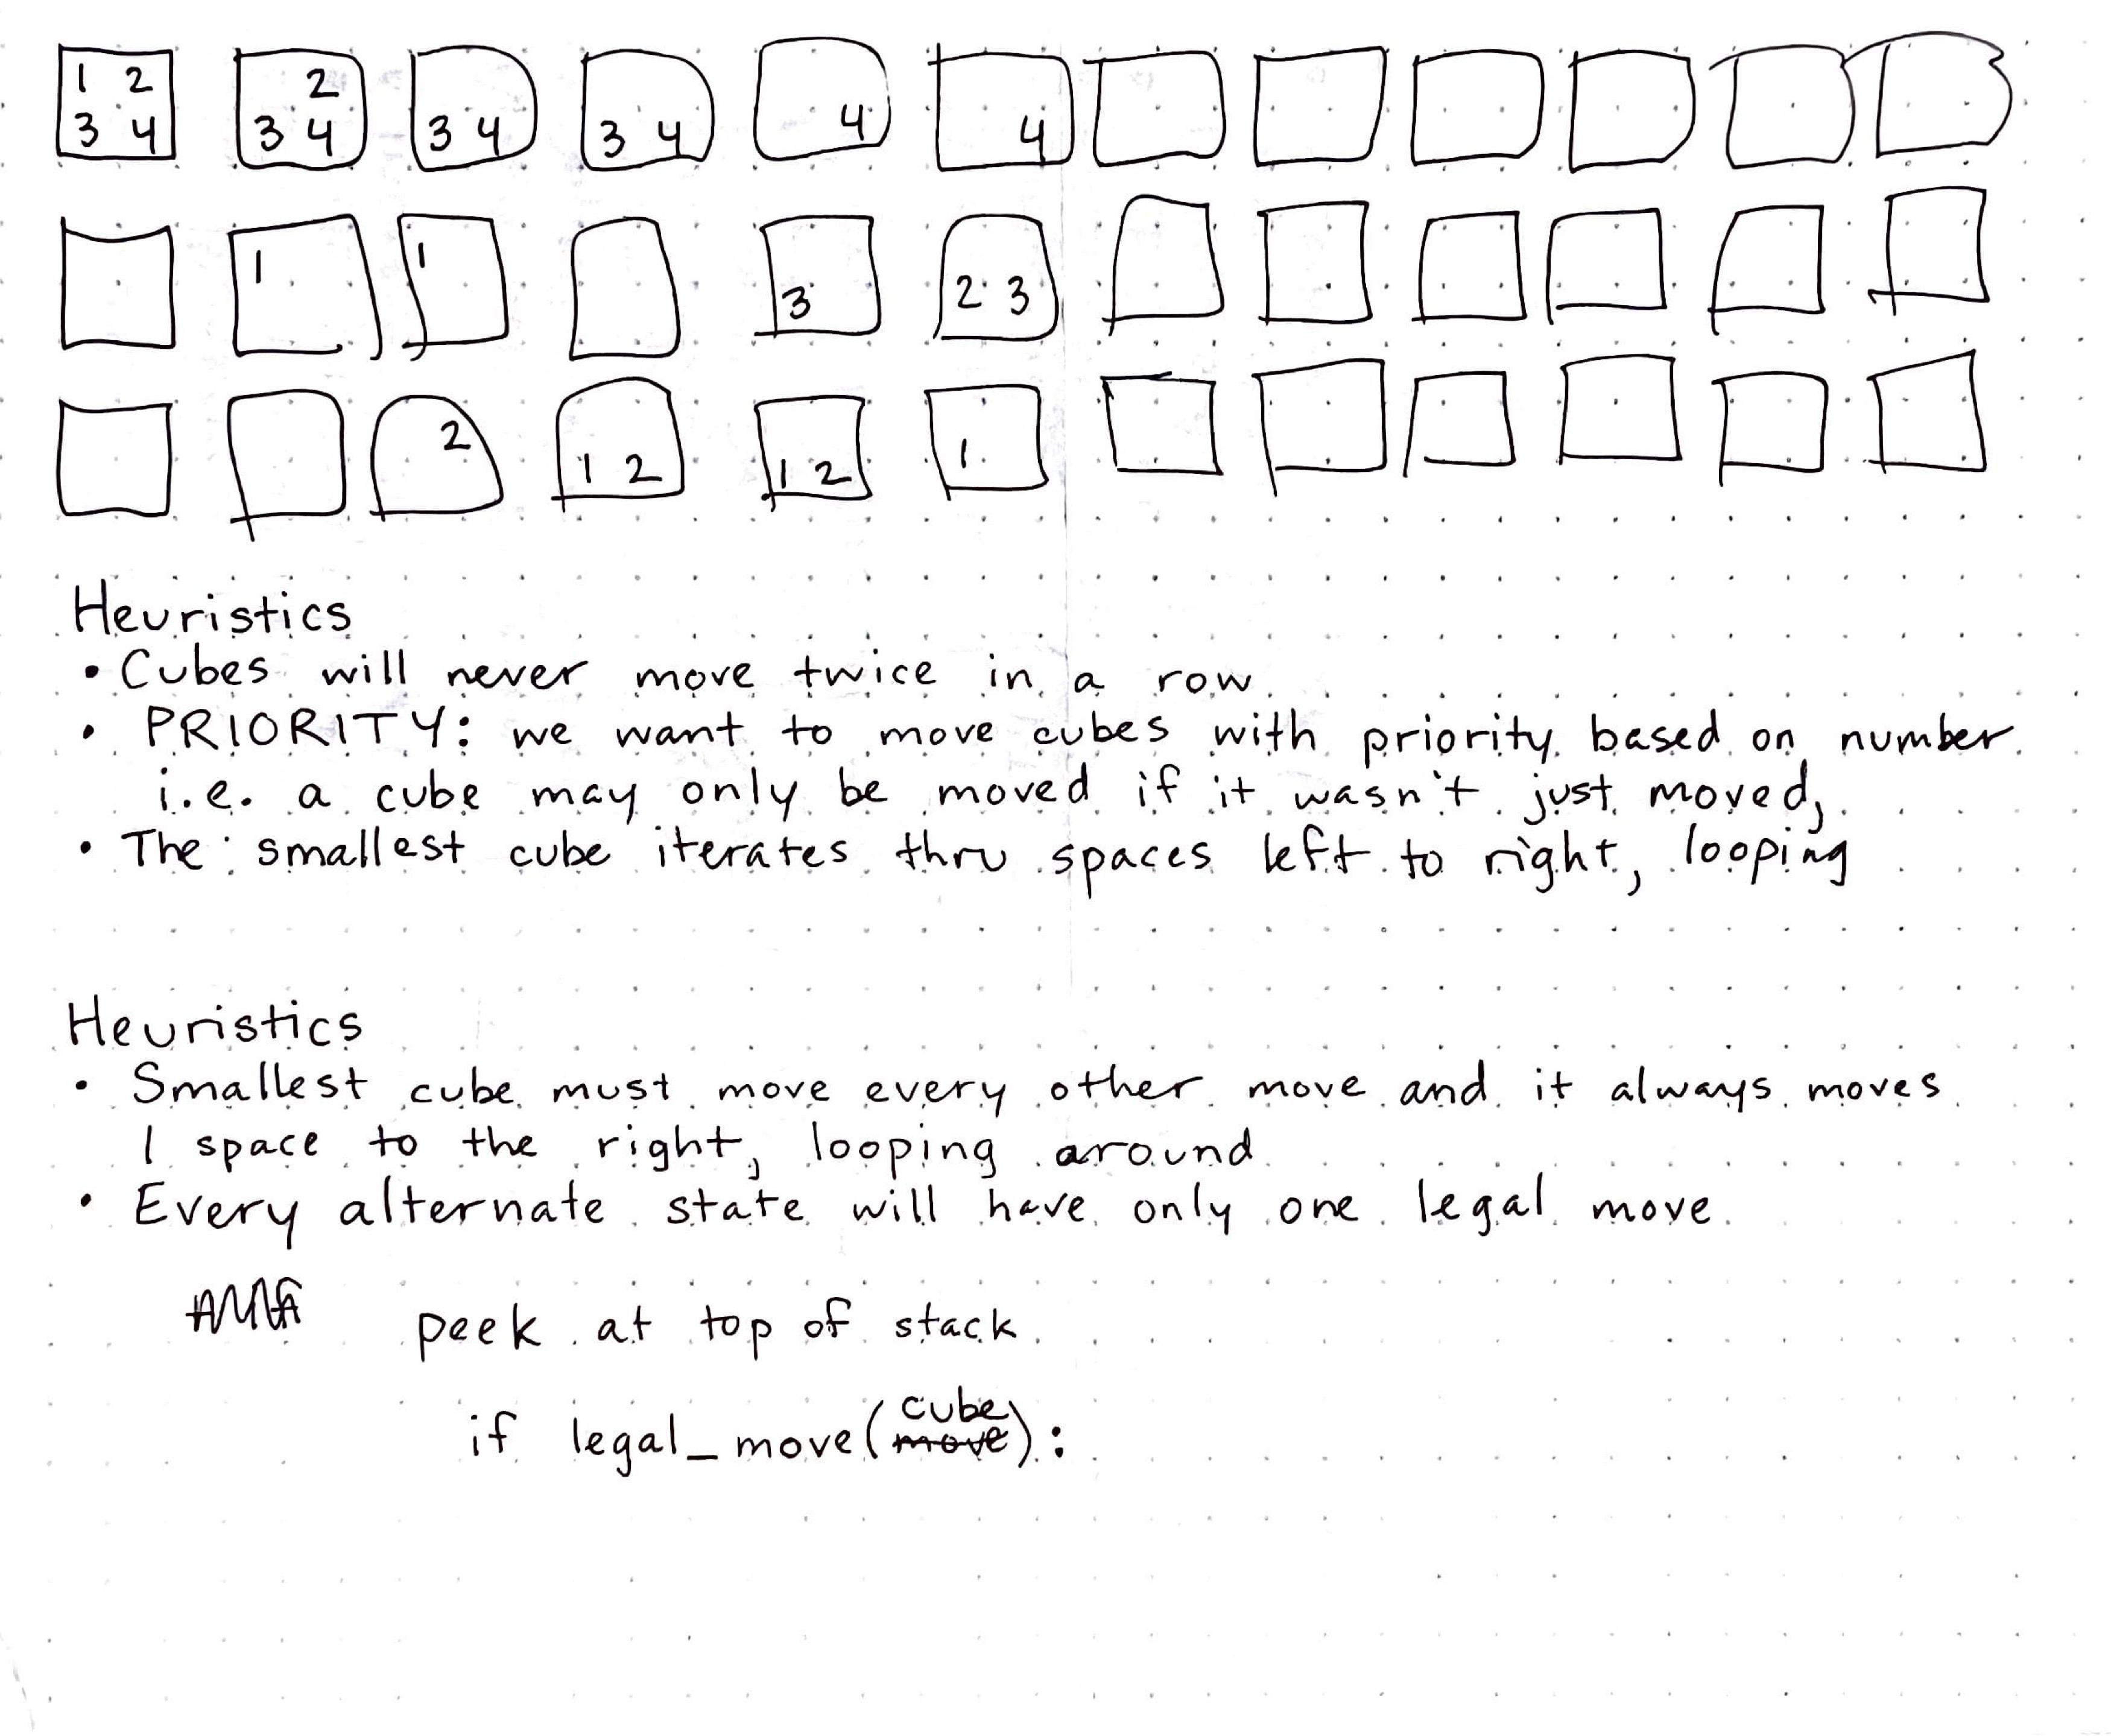 1 2 2
3 4 3 4 3 4 3 4 4 4
1 1 3 2 3
2 1 2 1 2 1
Heuristics
• Cubes will never move twice in a row.
• PRIORITY: we want to move cubes with priority based on number.
i.e. a cube may only be moved if it wasn't just moved,
• The smallest cube iterates thru spaces left to right, looping
Heuristics
• Smallest cube must move every other move and it always moves
1 space to the right, looping around
• Every alternate state will have only one legal move.
peek at top of stack
cube
if legal_move(move):